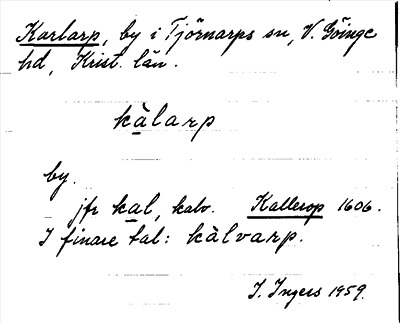 Karlarp, by i Tjörnarps sn, V. Göinge
hd, Krist. län.
kàlarp
by.
jfr kal, kalv. Kallerop 1606.
I finare tal: kàlvarp.
I. Ingers 1959.